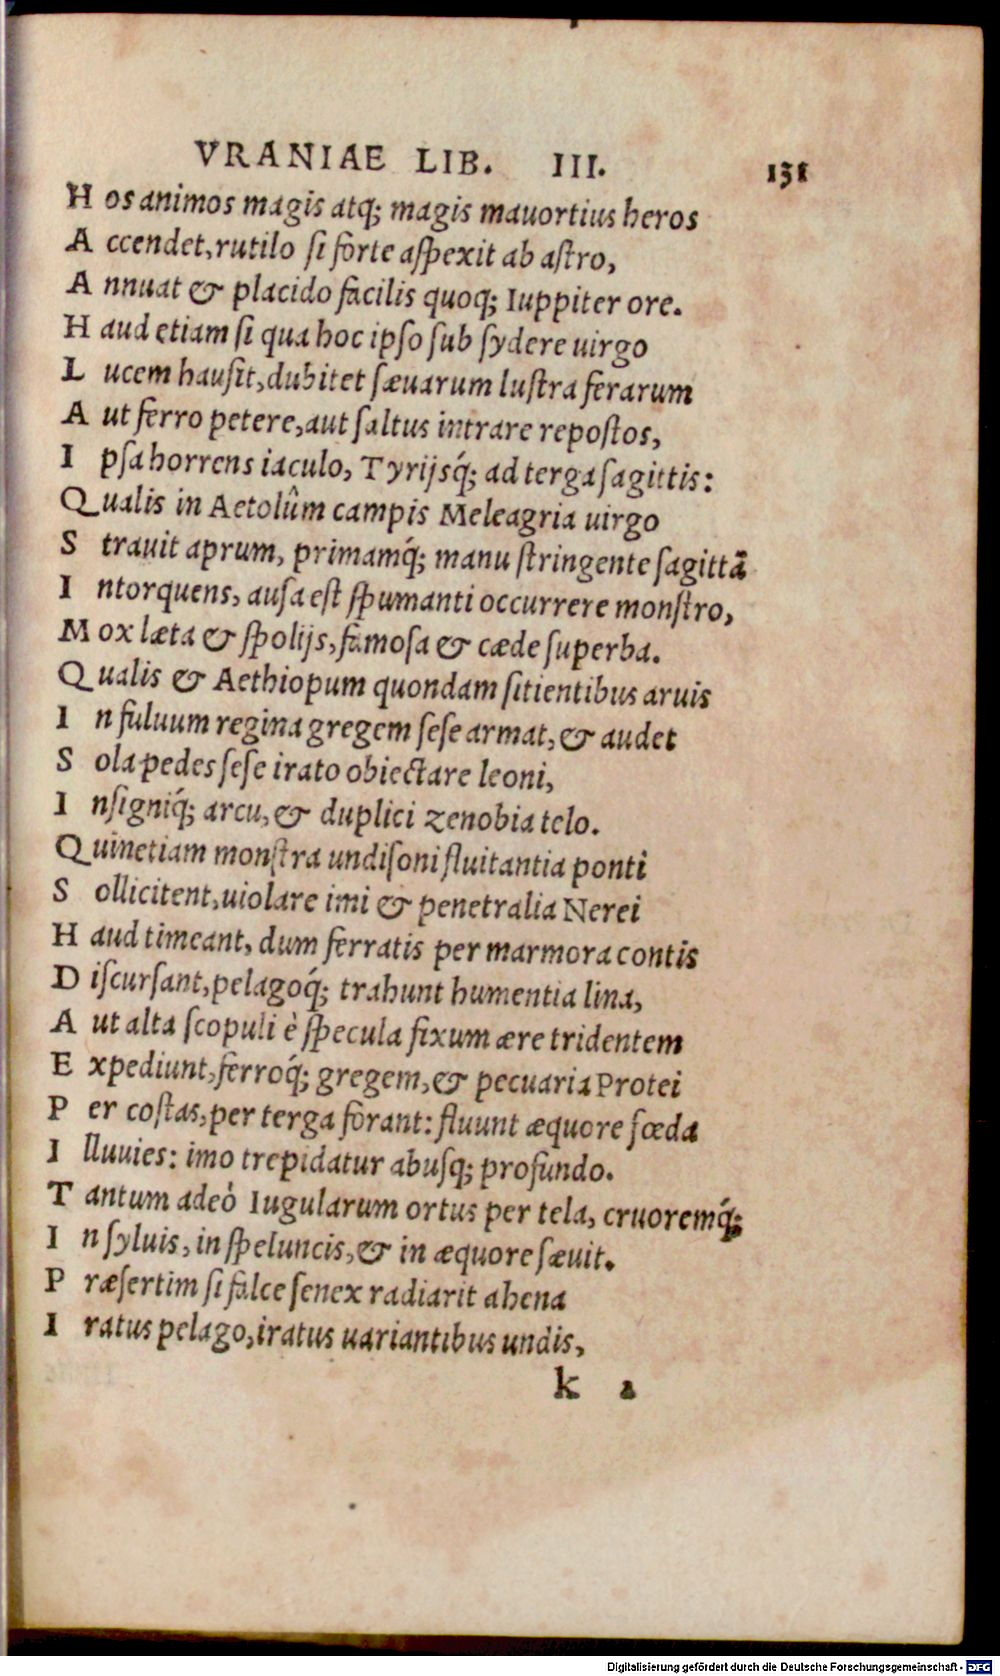 VRANIAE LIB. III. 131
H os animos magis atq; magis mauortius heros
A ccendet, rutilo ſi forte aſpexit ab aſtro,
A nnuat & placido facilis quoq; Iuppiter ore.
H aud etiam ſi qua hoc ipſo ſub ſydere uirgo
L ucem hauſit, dubitet ſæuarum luſtra ferarum
A ut ferro petere, aut ſaltus intrare repoſtos,
I pſa horrens iaculo, Tyrijsq́; ad terga ſagittis:
Q ualis in Aetolûm campis Meleagria uirgo
S trauit aprum, primamq́; manu ſtringente ſagittã
I ntorquens, auſa eſt ſpumanti occurrere monſtro,
M ox læta & ſpolijs, famoſa & cæde ſuperba.
Q ualis & Aethiopum quondam ſitientibus aruis
I n fuluum regina gregem ſeſe armat, & audet
S ola pedes ſeſe irato obiectare leoni,
I nſigniq́; arcu, & duplici zenobia telo.
Q uinetiam monſtra undiſoni fluitantia ponti
S ollicitent, uiolare imi & penetralia Nerei
H aud timeant, dum ferratis per marmora contis
D iſcurſant, pelagoq́; trahunt humentia lina,
A ut alta ſcopuli è ſpecula fixum ære tridentem
E xpediunt, ferroq́; gregem, & pecuaria Protei
P er coſtas, per terga forant: fluunt æquore fœda
I lluuies: imo trepidatur abuſq; profundo.
T antum adeò Iugularum ortus per tela, cruoremq́;
I n ſyluis, in ſpeluncis, & in æquore ſæuit.
P ræſertim ſi falce ſenex radiarit ahena
I ratus pelago, iratus uariantibus undis,
k a
Digitalisierung gefördert durch die Deutsche Forschungsgemeinschaft - DFG